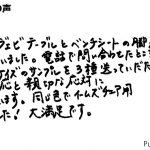 の声
ヴェビテーブルとベンチシートの脚
いました。電話で問い合わせたところ
サイズのサンプルを3種送っていただ
応と親切な応対に
います。同じ色でイームズチェア用
た！大満足です。